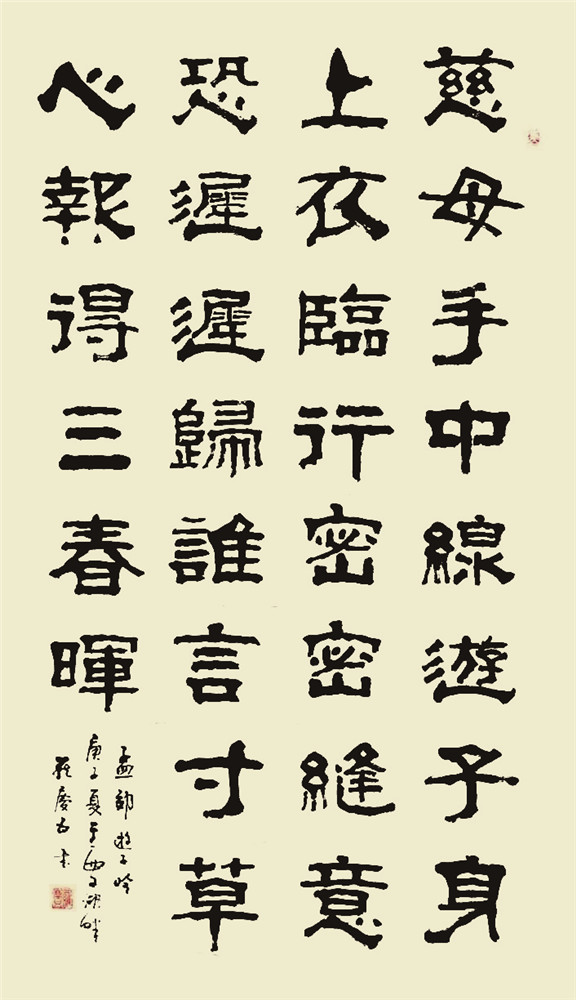 慈母手中線遊子身
上衣臨行密密縫意
恐遲遲歸誰言寸草
心報得三春暉
孟郊遊子吟
庚子夏于西子湖畔
慶書